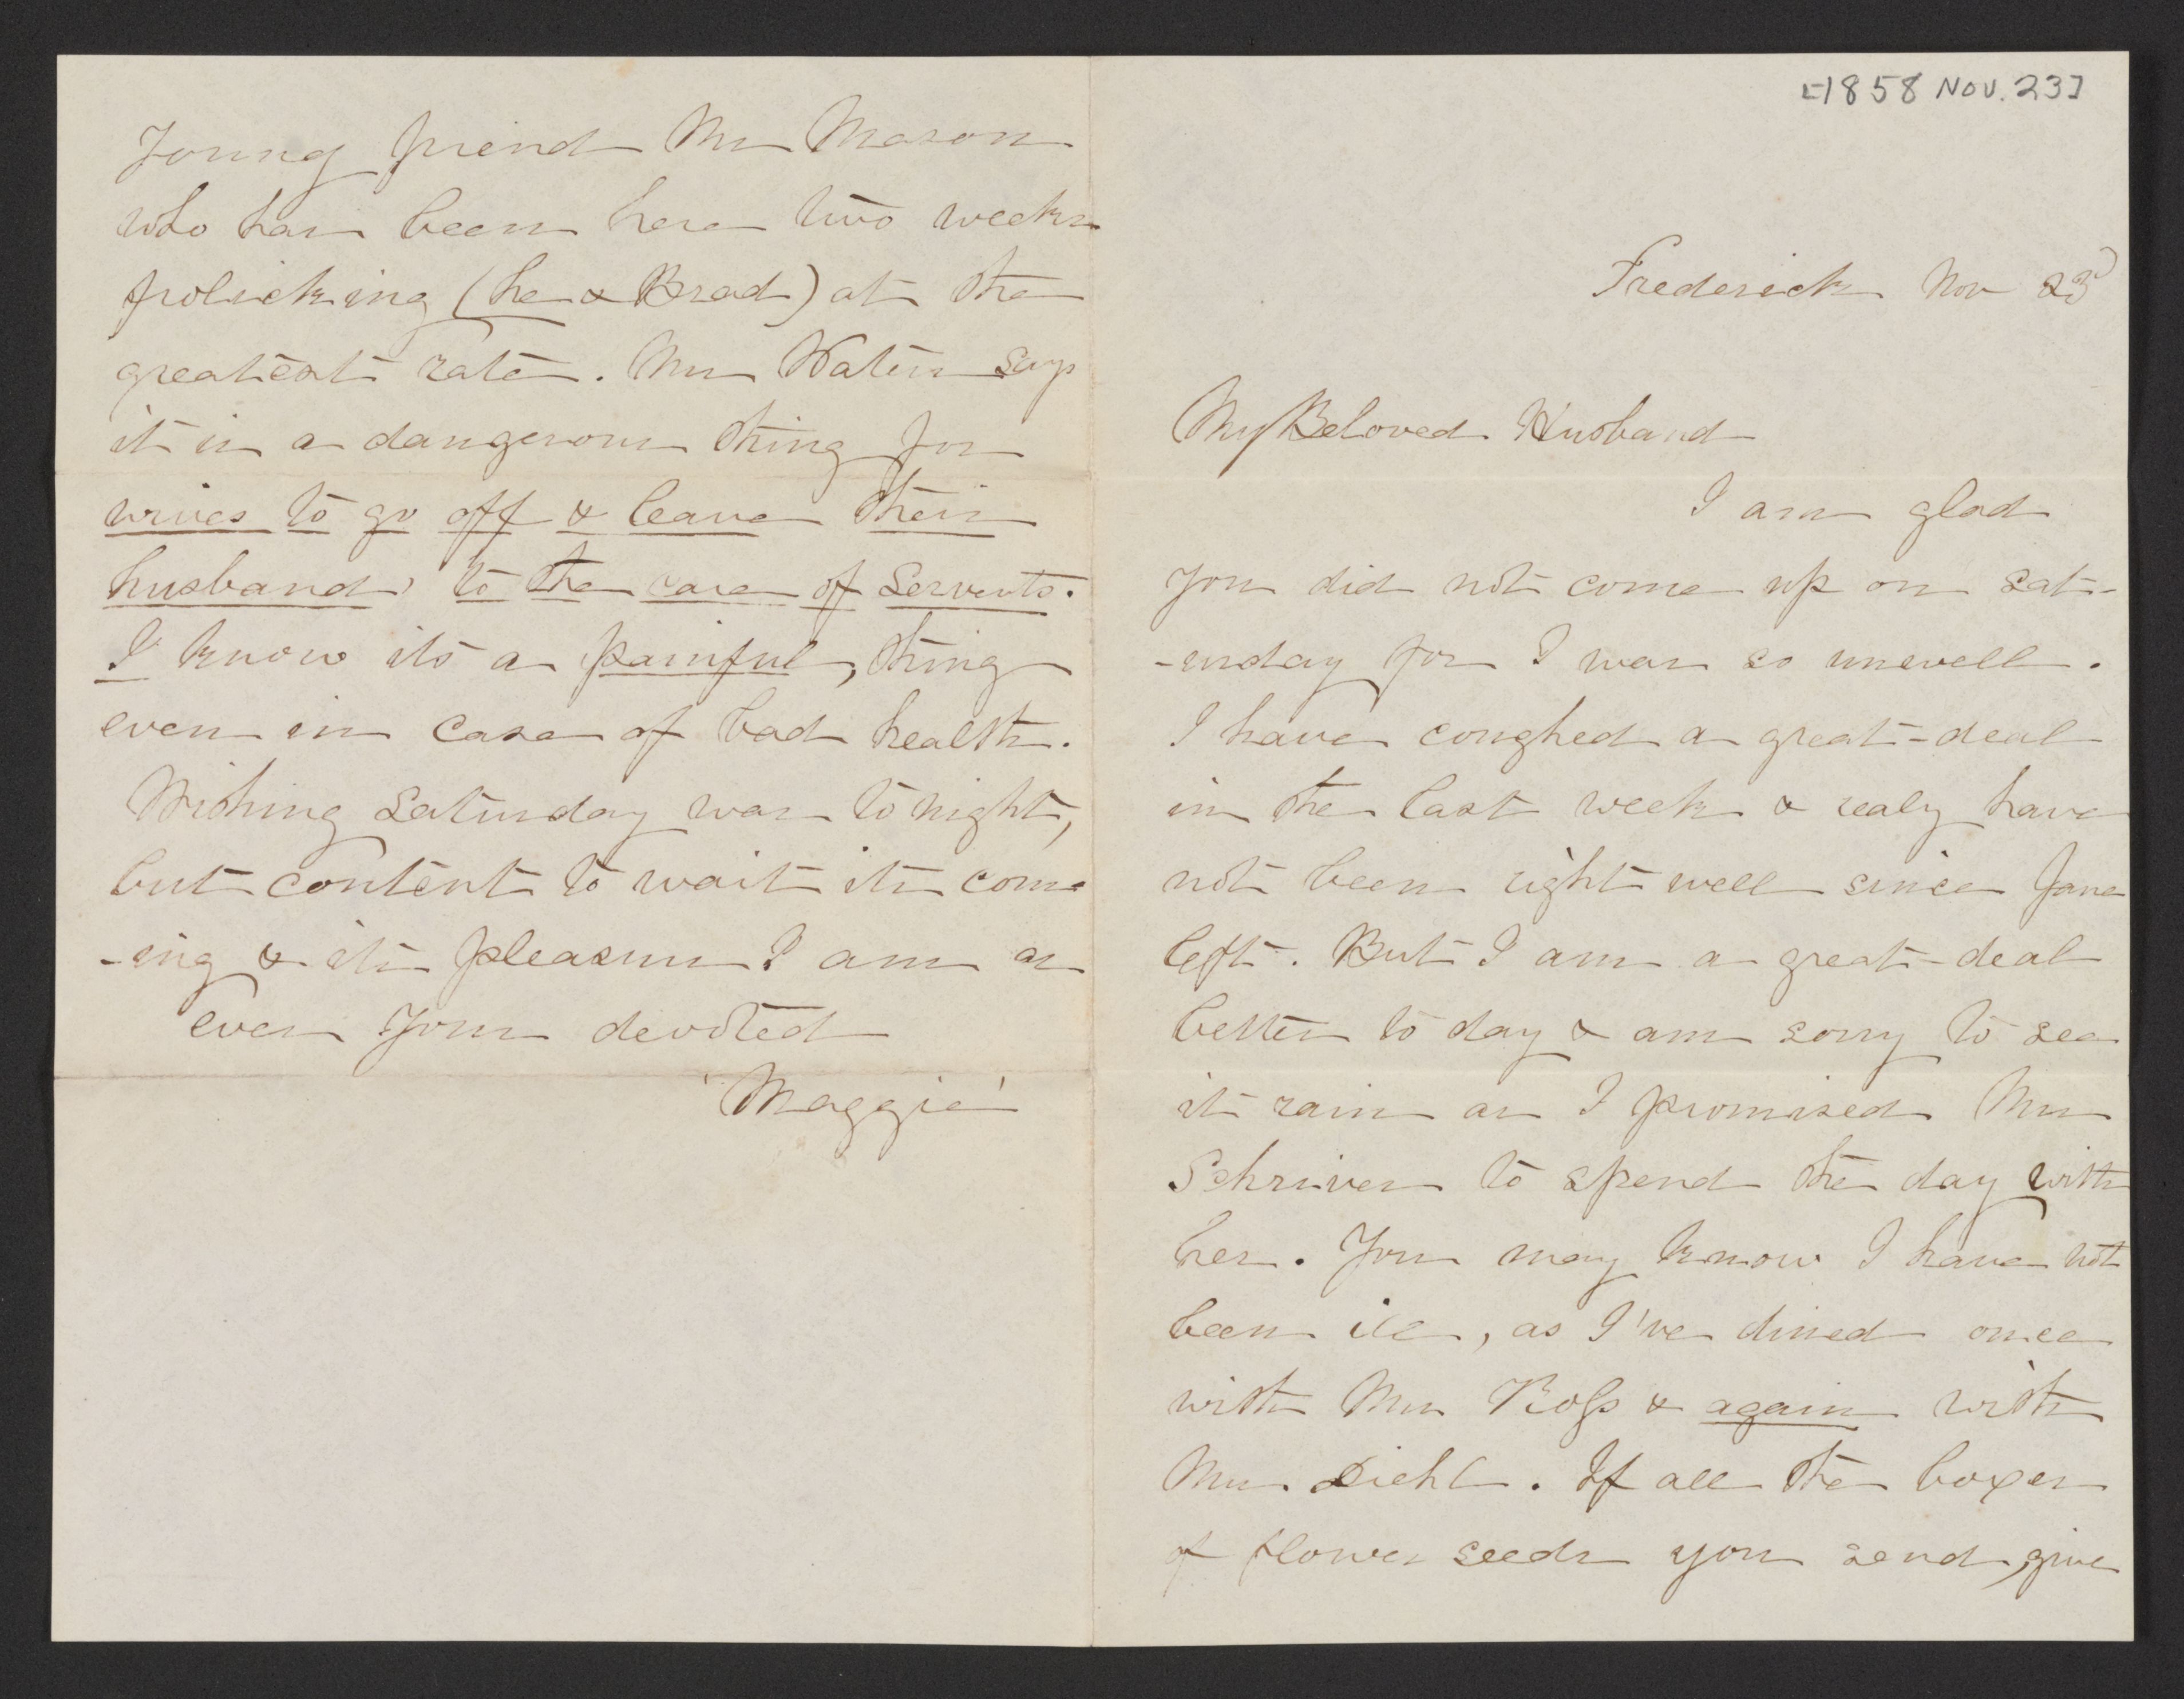 [1858 NOV. 23]
Frederick Nov 23d
My Beloved Husband
I am glad
you did not come up on Sat-
-urday for I was so unwell.
I have coughed a great-deal
in the last week & realy have
not been right well since Jane
left. But I am a great-deal
better to day & am sorry to see
it rain as I promised Mrs
Schriver to spend the day with
her. You may know I have not
been ill, as I've dined once
with Mrs Roſs & again with
Mrs Diehl. If all the boxes
of flower seeds you send, give
Young friend Mr Mason
who has been here two weeks
frolicking (he & Brad) at the
greatest rate. Mrs Waters says
it is a dangerous thing for
wives to go off & leave their
husbands to the care of Servents.
I know its a painful, thing
even in case of bad health.
Wishing Saturday was to night,
but content to wait its com
-ing & its pleasures I am as
ever your devoted
'Maggie'